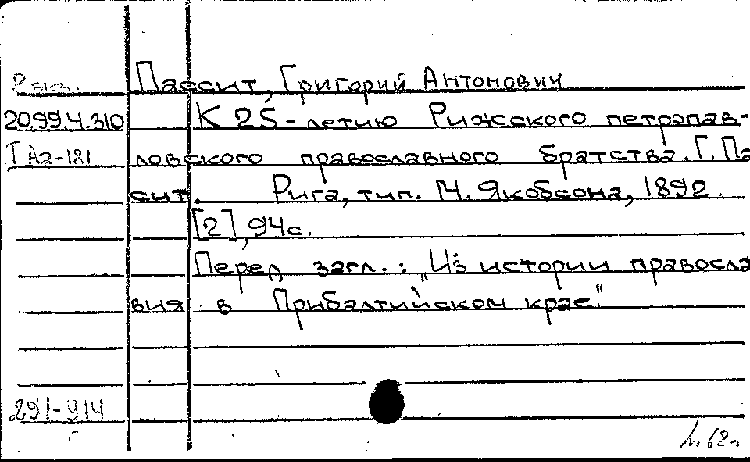 Пассит, Григорий Антонович
20.99.4.310 К 25-летию Рижского петропав-
ловского православного братства. Г. Па
сит. Рига, тип. М. Якобсона, 1892.
[2], 94с.
Перед загл.: „Из истории правосла
вия в Прибалтийском крае“
291-914